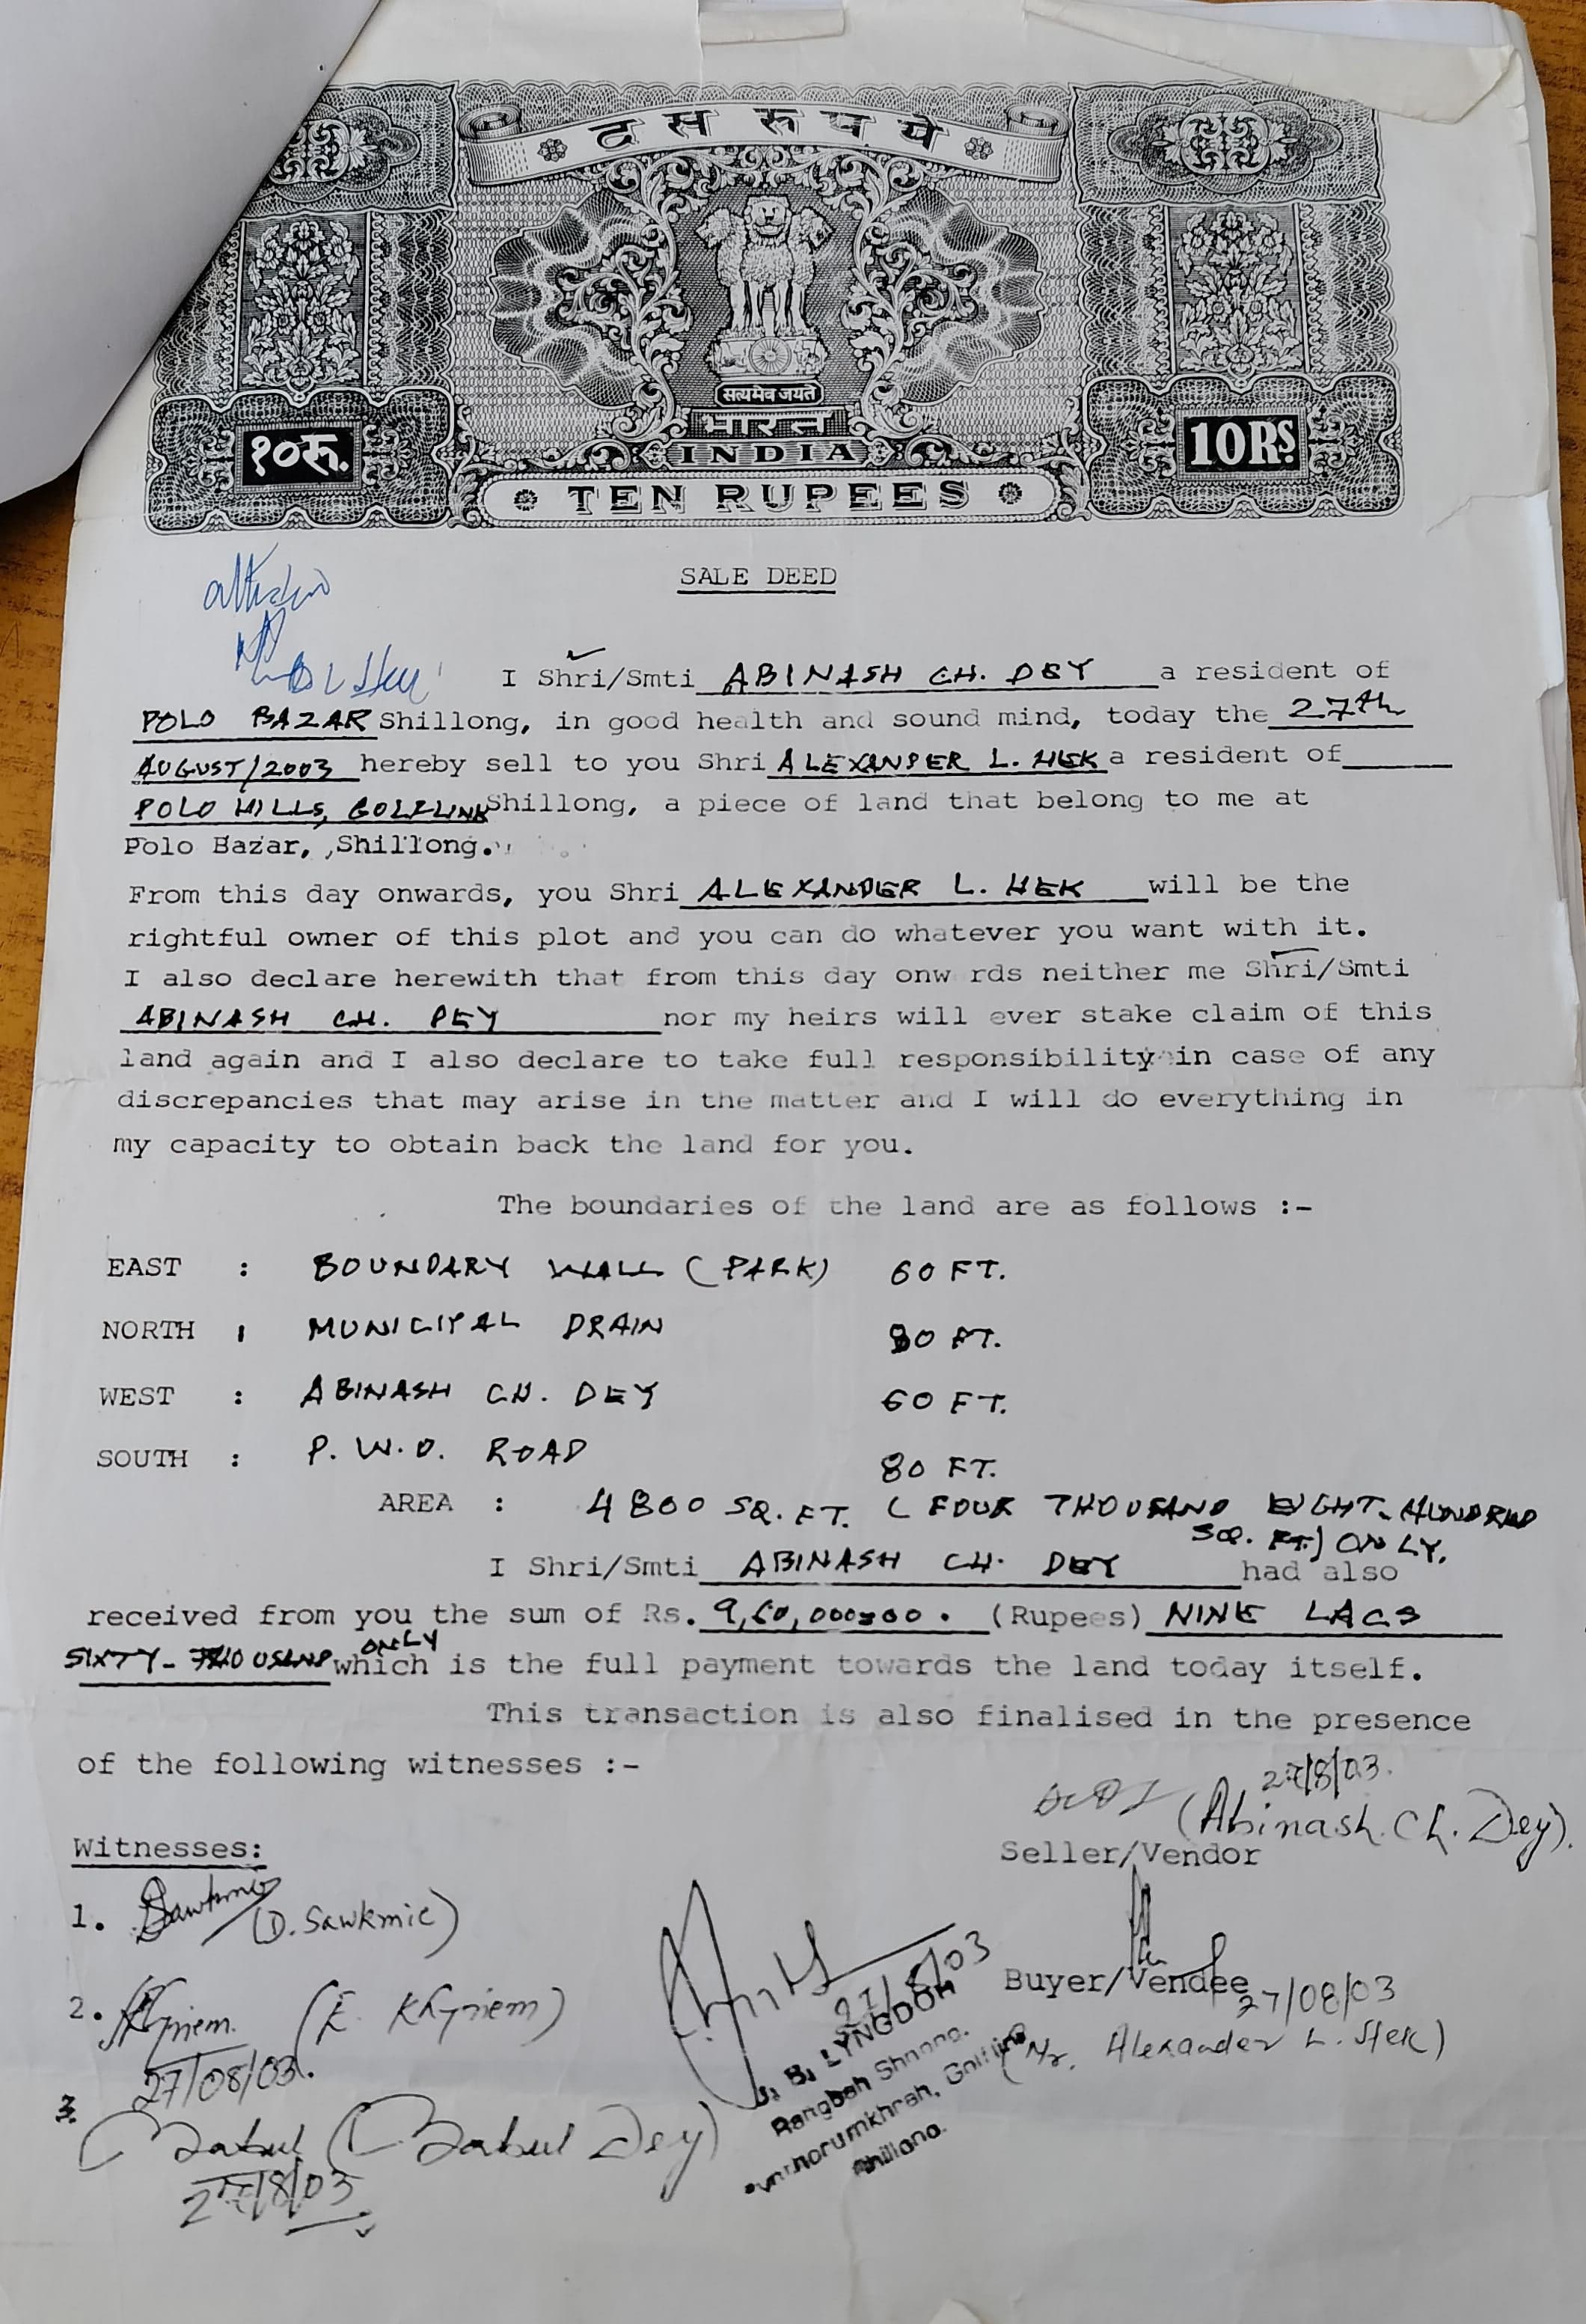 दस रुपये
सत्यमेव जयते
भारत
INDIA
१०रू.
10RS
TEN RUPEES
SALE DEED
I Shri/Smti ABINASH CH. DEY a resident of
POLO BAZAR Shillong, in good health and sound mind, today the 27th
AUGUST/2003 hereby sell to you Shri ALEXANDER L. HEK a resident of
POLO HILLS, GOLFLINK Shillong, a piece of land that belong to me at
Polo Bazar, ,Shillong.
From this day onwards, you Shri ALEXANDER L. HEK will be the
rightful owner of this plot and you can do whatever you want with it.
I also declare herewith that from this day onw rds neither me Shri/Smti
ABINASH CH. DEY nor my heirs will ever stake claim of this
land again and I also declare to take full responsibility in case of any
discrepancies that may arise in the matter and I will do everything in
my capacity to obtain back the land for you.
The boundaries of the land are as follows :-
EAST : BOUNDARY WALL (PARK) 60 FT.
NORTH : MUNICIPAL DRAIN 80 FT.
WEST : ABINASH CH. DEY 60 FT.
SOUTH : P.W.D. ROAD 80 FT.
AREA : 4800 SQ.FT. (FOUR THOUSAND EIGHT-HUNDRED
SQ. FT.) ONLY.
I Shri/Smti ABINASH CH. DEY had also
received from you the sum of Rs. 9,60,000=00. (Rupees) NINE LACS
SIXTY-THOUSAND ONLY which is the full payment towards the land today itself.
This transaction is also finalised in the presence
of the following witnesses :-
27/8/03.
(Abinash. Ch. Dey).
Seller/Vendor
Witnesses:
1. Sawkmie (D. Sawkmie)
27/8/03
Buyer/Vendee
27/08/03
(Mr. Alexander L. Hek)
2. Khyriem. (E. Khyriem)
27/08/03.
B. LYNGDOH
Rangbah Shnong.
Golflink
Shillong.
3. Babul (Babul Dey)
27/8/03